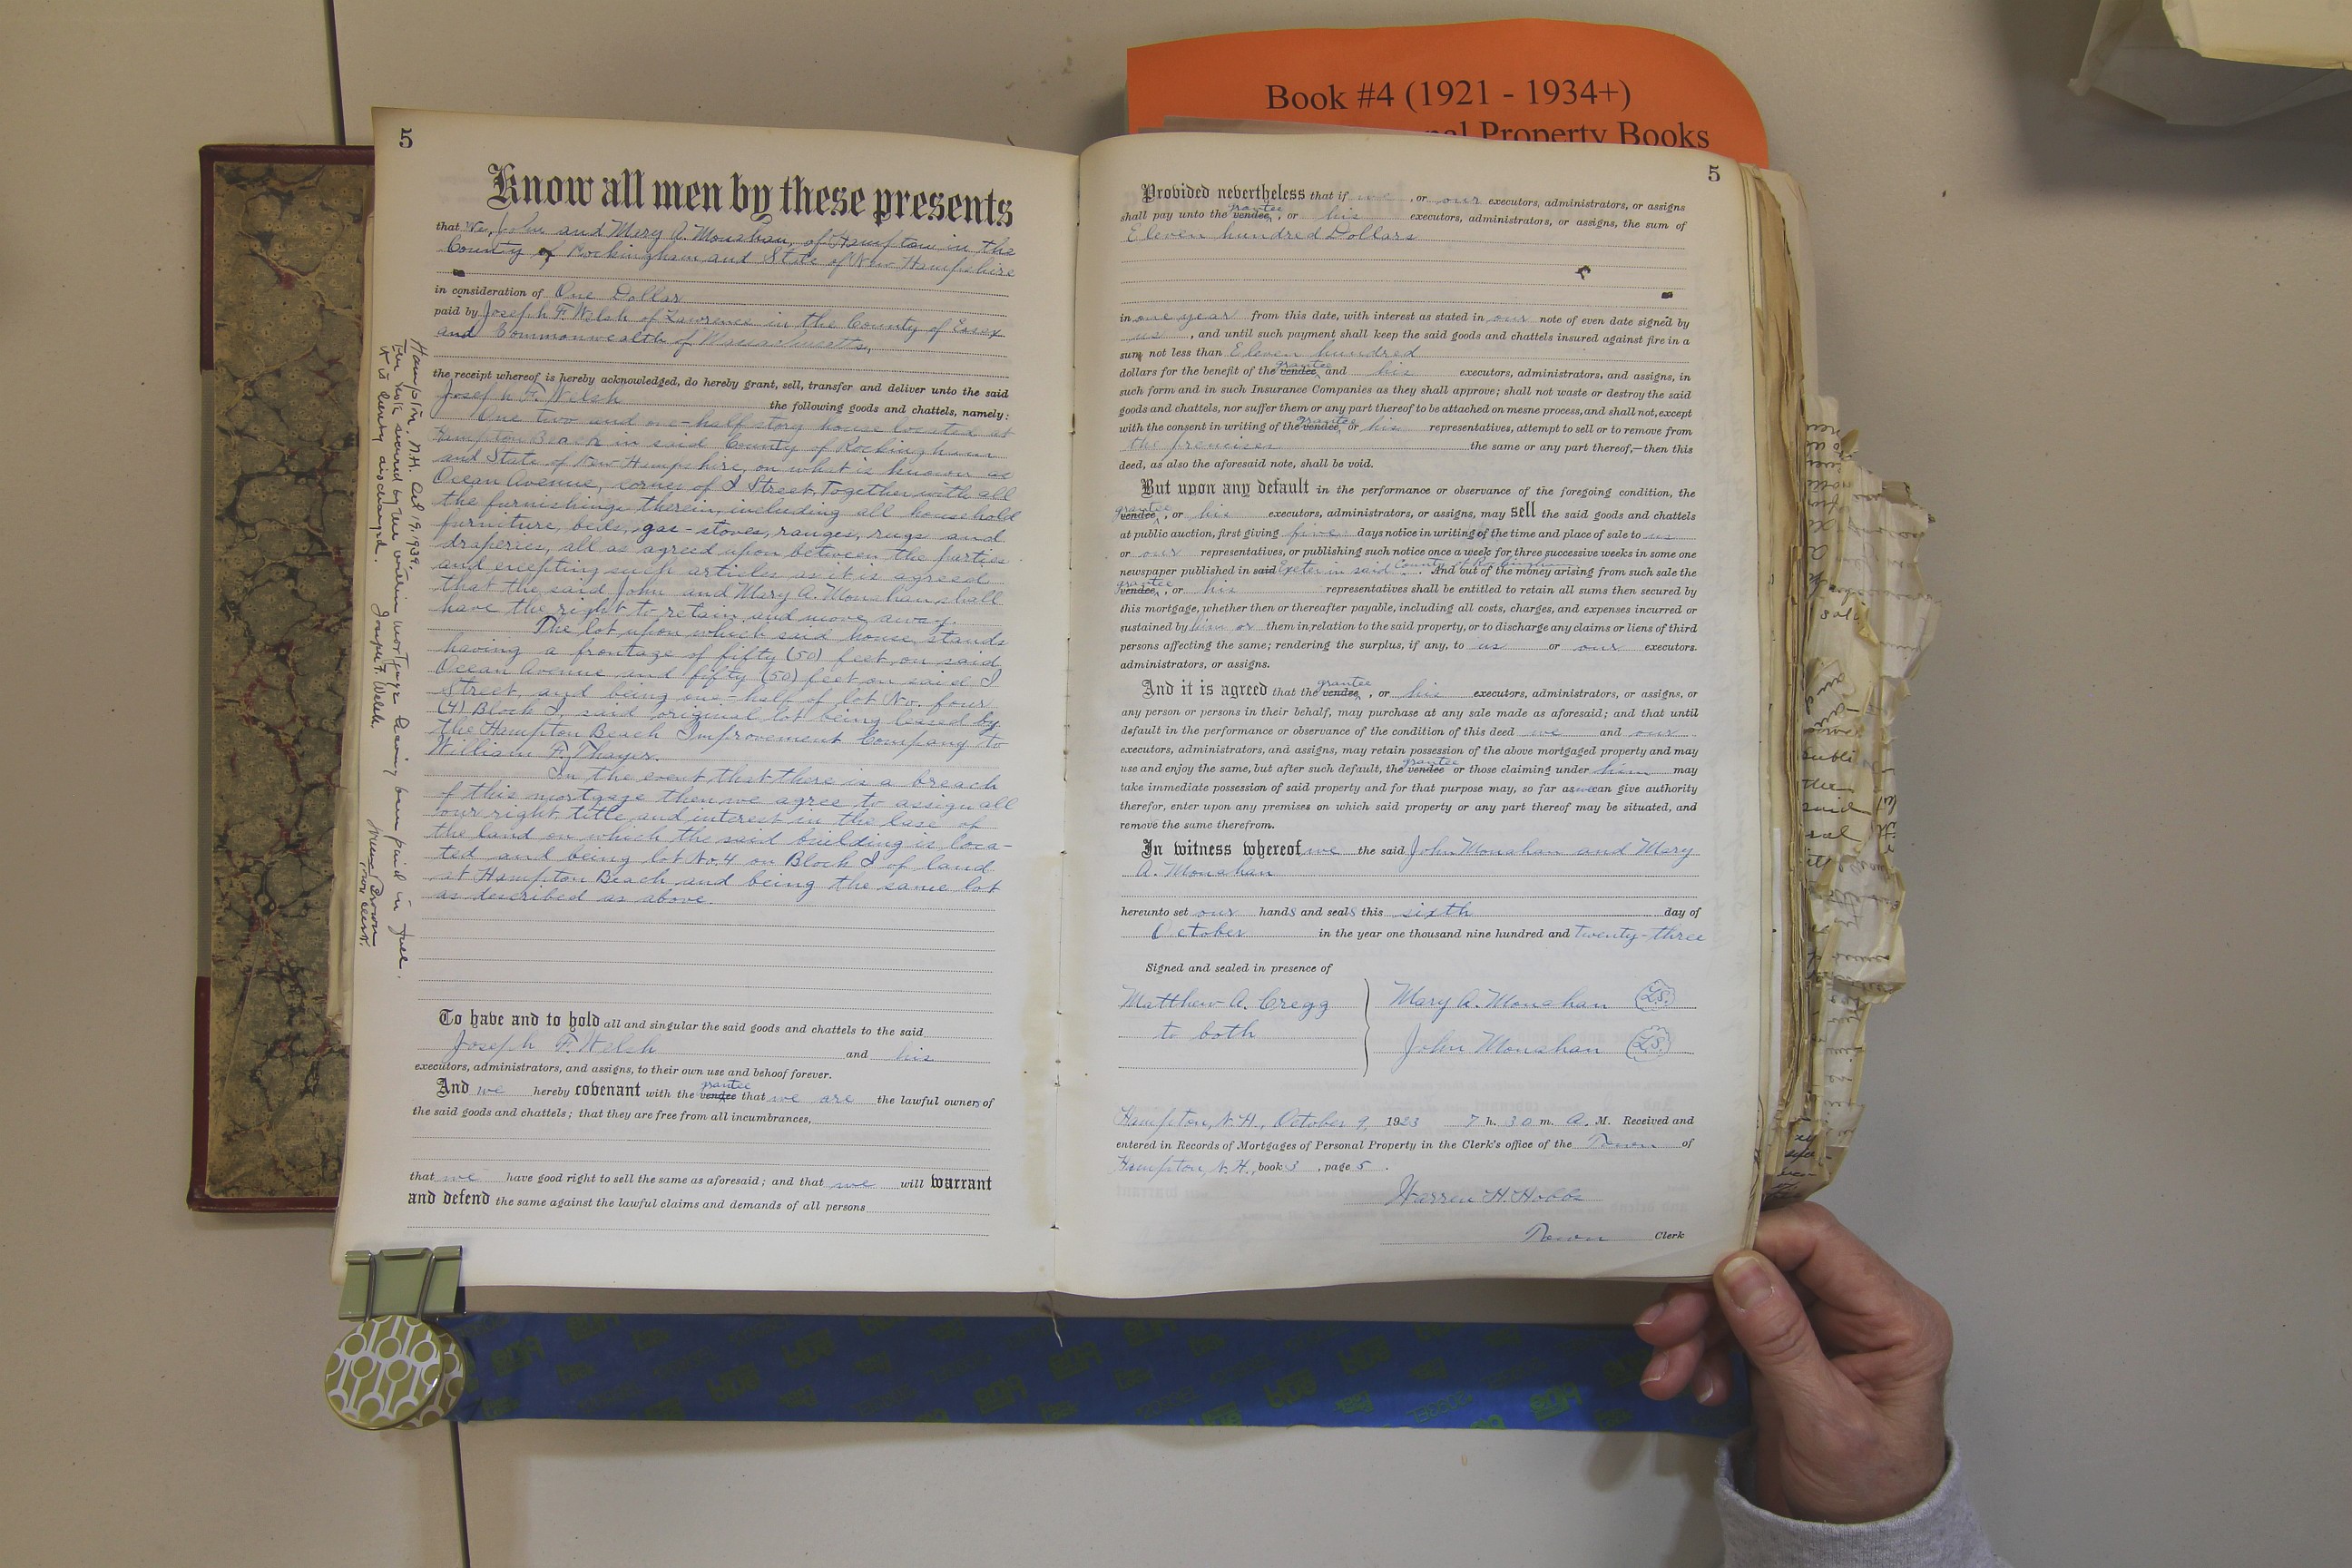 Book #4 (1921 - 1934+)
nal Property Books
5
Know all men by these presents
that We, John and Mary A. Monahan, of Hampton in the
County of Rockingham and State of New Hampshire
in consideration of One Dollar
paid by Joseph F. Welsh of Lawrence in the County of Essex
and Commonwealth of Massachusetts,
the receipt whereof is hereby acknowledged, do hereby grant, sell, transfer and deliver unto the said
Joseph F. Welsh the following goods and chattels, namely:
One two and one-half story house located at
Hampton Beach in said County of Rockingham
and State of New Hampshire, on what is known as
Ocean Avenue, corner of I Street, Together with all
the furnishings therein, including all household
furniture, beds, gas-stoves, ranges, rugs and
draperies, all as agreed upon between the parties
and excepting such articles as it is agreed
that the said John and Mary A. Monahan shall
have the right to retain and move away.
The lot upon which said house stands
having a frontage of fifty (50) feet on said
Ocean Avenue and fifty (50) feet on said I
Street, and being one-half of lot No. four
(4) Block I, said original lot being leased by
the Hampton Beach Improvement Company to
William F. Thayer.
In the event that there is a breach
of this mortgage then we agree to assign all
our right title and interest in the lease of
the land on which the said building is loca-
ted and being lot No. 4 on Block I of land
at Hampton Beach and being the same lot
as described as above.
To have and to hold all and singular the said goods and chattels to the said
Joseph F. Welsh and his
executors, administrators, and assigns, to their own use and behoof forever.
And we hereby covenant with the vendee grantee that we are the lawful owners of
the said goods and chattels; that they are free from all incumbrances,
that we have good right to sell the same as aforesaid; and that we will warrant
and defend the same against the lawful claims and demands of all persons
Hampton, N.H. 19, 1939.
The note secured by the within mortgage having been paid in full.
it is hereby discharged. Joseph F. Welsh
Brown
Town Clerk.
5
Provided nevertheless that if we, or our executors, administrators, or assigns
shall pay unto the vendee grantee, or his executors, administrators, or assigns, the sum of
Eleven hundred Dollars
in one year from this date, with interest as stated in our note of even date signed by
us, and until such payment shall keep the said goods and chattels insured against fire in a
sum not less than Eleven hundred
dollars for the benefit of the vendee grantee and his executors, administrators, and assigns, in
such form and in such Insurance Companies as they shall approve; shall not waste or destroy the said
goods and chattels, nor suffer them or any part thereof to be attached on mesne process, and shall not, except
with the consent in writing of the vendee grantee or his representatives, attempt to sell or to remove from
the premises the same or any part thereof,—then this
deed, as also the aforesaid note, shall be void.
But upon any default in the performance or observance of the foregoing condition, the
vendee grantee, or his executors, administrators, or assigns, may sell the said goods and chattels
at public auction, first giving five days notice in writing of the time and place of sale to us
or our representatives, or publishing such notice once a week for three successive weeks in some one
newspaper published in said Exeter in said County of Rockingham. And out of the money arising from such sale the
vendee grantee, or his representatives shall be entitled to retain all sums then secured by
this mortgage, whether then or thereafter payable, including all costs, charges, and expenses incurred or
sustained by him or them in relation to the said property, or to discharge any claims or liens of third
persons affecting the same; rendering the surplus, if any, to us or our executors.
administrators, or assigns.
And it is agreed that the vendee grantee, or his executors, administrators, or assigns, or
any person or persons in their behalf, may purchase at any sale made as aforesaid; and that until
default in the performance or observance of the condition of this deed we and our
executors, administrators, and assigns, may retain possession of the above mortgaged property and may
use and enjoy the same, but after such default, the vendee grantee or those claiming under him may
take immediate possession of said property and for that purpose may, so far as we can give authority
therefor, enter upon any premises on which said property or any part thereof may be situated, and
remove the same therefrom.
In witness whereof we the said John Monahan and Mary
A. Monahan
hereunto set our hands and seals this sixth day of
October in the year one thousand nine hundred and twenty-three
Signed and sealed in presence of
Matthew A. Cregg
to both
Mary A. Monahan L.S.
John Monahan L.S.
Hampton, N.H., October 9, 1923 7 h. 30 m. A. M. Received and
entered in Records of Mortgages of Personal Property in the Clerk's office of the Town of
Hampton, N.H., book 3, page 5.
Warren H. Hobbs
Town Clerk